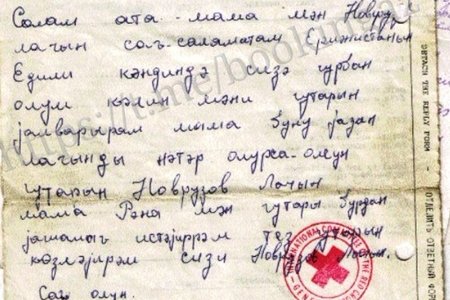 Салам ата-мама мән Новруз
лачын сағ-саламатам Ермәнистанын
Едили кәндиндә сизә гурбан
олум көлин мәни гутарын
јалварырам мама буну јазан
лачынды нәтәр олурса-олсун
гутарын Новрузов Лачын
мама Рәна мән гутары бурдан
јашамағ истәјиррәм тез гутарын
көзләјирәм сизи Новрузов Лачын.
Сағ олун.
https://t.me/book
INTERNATIONAL COMMITTEE OF THE RED CROSS
DETACH THE REPLY FORM
ОТДЕЛИТЬ ОТВЕТНЫЙ ФОР